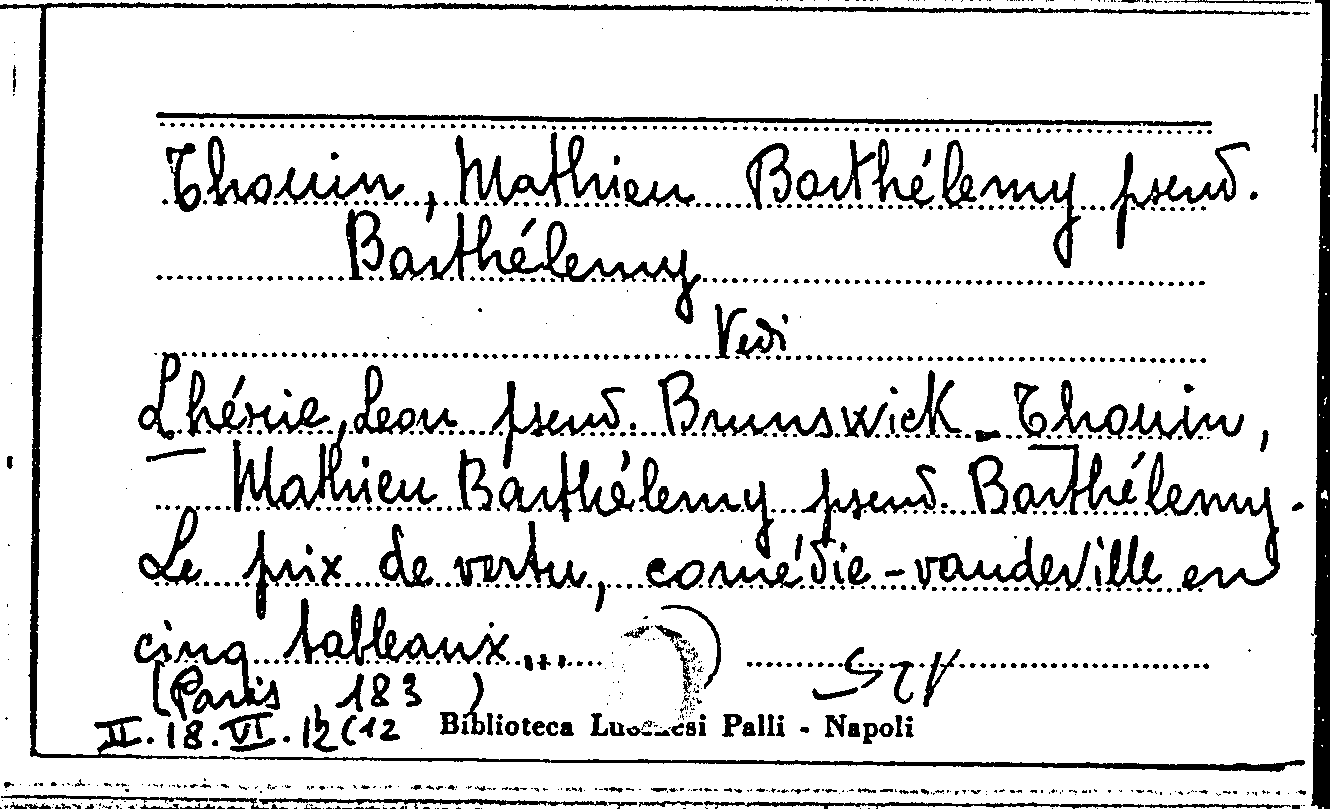 Thouin, Mathieu Barthélemy pseud.
Barthélemy
Vedi
Lhérie, Leon pseud. Brunswick - Thouin,
Mathieu Barthélemy pseud. Barthélemy.
Le prix de vertu, comédie-vaudeville en
cinq tableaux...
(Paris, 183 )
II.18.VI.12(12
Biblioteca Lucchesi Palli - Napoli